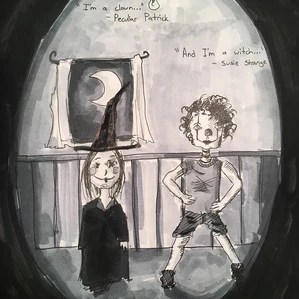 "I'm a clown..."
- Peculiar Patrick
"And I'm a witch..."
- Susie Strange